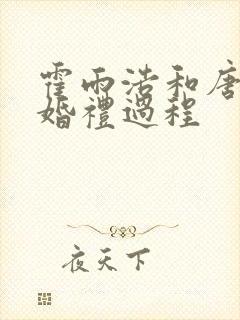 霍雨浩和唐
婚禮過程
夜天下